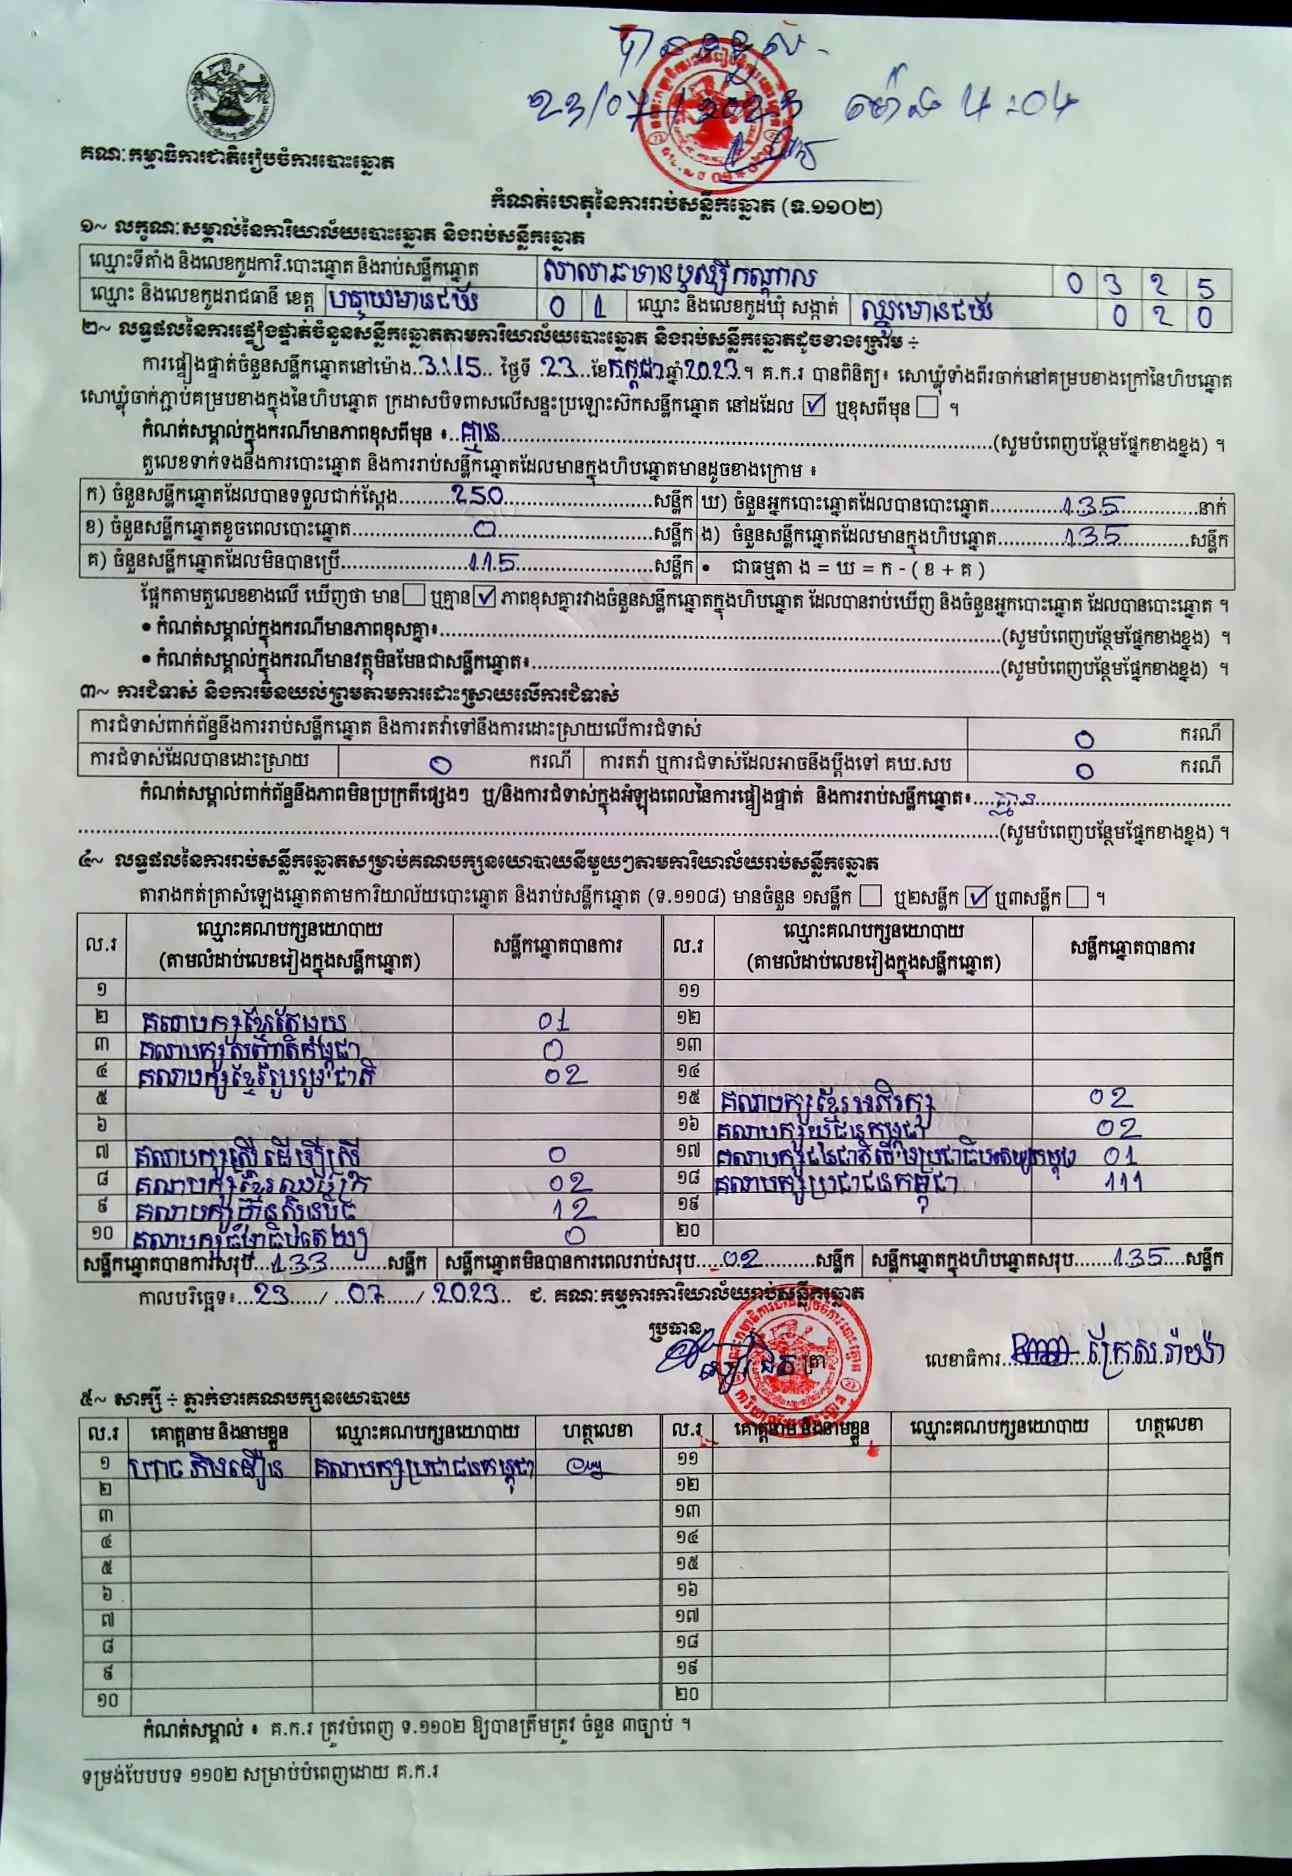 បានទទួល
23/07/2023 ម៉ោង 4:04
គណៈកម្មាធិការជាតិរៀបចំការបោះឆ្នោត
កំណត់ហេតុនៃការរាប់សន្លឹកឆ្នោត (ទ.១១០២)
១~ លក្ខណៈសម្គាល់នៃការិយាល័យបោះឆ្នោត និងរាប់សន្លឹកឆ្នោត
ឈ្មោះទីតាំង និងលេខកូដការិ.បោះឆ្នោត និងរាប់សន្លឹកឆ្នោត សាលាឆទានឫស្សីកណ្តាល 0 3 2 5
ឈ្មោះ និងលេខកូដរាជធានី ខេត្ត បន្ទាយមានជ័យ 0 1 ឈ្មោះ និងលេខកូដឃុំ សង្កាត់ ឈ្នួរមានជ័យ 0 2 0
២~ លទ្ធផលនៃការផ្ទៀងផ្ទាត់ចំនួនសន្លឹកឆ្នោតតាមការិយាល័យបោះឆ្នោត និងរាប់សន្លឹកឆ្នោតដូចខាងក្រោម ÷
ការផ្ទៀងផ្ទាត់ចំនួនសន្លឹកឆ្នោតនៅម៉ោង..3:15.. ថ្ងៃទី .23...ខែកក្កដាឆ្នាំ2023.។ គ.ក.រ បានពិនិត្យ៖ សោឃ្លុំទាំងពីរចាក់នៅគម្របខាងក្រៅនៃហិបឆ្នោត
សោឃ្លុំចាក់ភ្ជាប់គម្របខាងក្នុងនៃហិបឆ្នោត ក្រដាសបិទពាសលើសន្ទះប្រឡោះស៊កសន្លឹកឆ្នោត នៅដដែល ☑ ឬខុសពីមុន ☐ ។
កំណត់សម្គាល់ក្នុងករណីមានភាពខុសពីមុន ៖..គ្មាន....(សូមបំពេញបន្ថែមផ្នែកខាងខ្នង) ។
តួលេខទាក់ទងនឹងការបោះឆ្នោត និងការរាប់សន្លឹកឆ្នោតដែលមានក្នុងហិបឆ្នោតមានដូចខាងក្រោម ៖
ក) ចំនួនសន្លឹកឆ្នោតដែលបានទទួលជាក់ស្តែង....250....សន្លឹក ឃ) ចំនួនអ្នកបោះឆ្នោតដែលបានបោះឆ្នោត....135....នាក់
ខ) ចំនួនសន្លឹកឆ្នោតខូចពេលបោះឆ្នោត....0....សន្លឹក ង) ចំនួនសន្លឹកឆ្នោតដែលមានក្នុងហិបឆ្នោត....135....សន្លឹក
គ) ចំនួនសន្លឹកឆ្នោតដែលមិនបានប្រើ....115....សន្លឹក • ជាធម្មតា ង = ឃ = ក - ( ខ + គ )
ផ្អែកតាមតួលេខខាងលើ ឃើញថា មាន ☐ ឬគ្មាន ☑ ភាពខុសគ្នារវាងចំនួនសន្លឹកឆ្នោតក្នុងហិបឆ្នោត ដែលបានរាប់ឃើញ និងចំនួនអ្នកបោះឆ្នោត ដែលបានបោះឆ្នោត ។
• កំណត់សម្គាល់ក្នុងករណីមានភាពខុសគ្នា៖....(សូមបំពេញបន្ថែមផ្នែកខាងខ្នង) ។
• កំណត់សម្គាល់ក្នុងករណីមានវត្ថុមិនមែនជាសន្លឹកឆ្នោត៖....(សូមបំពេញបន្ថែមផ្នែកខាងខ្នង) ។
៣~ ការជំទាស់ និងការមិនយល់ព្រមតាមការដោះស្រាយលើការជំទាស់
ការជំទាស់ពាក់ព័ន្ធនឹងការរាប់សន្លឹកឆ្នោត និងការតវ៉ាទៅនឹងការដោះស្រាយលើការជំទាស់ 0 ករណី
ការជំទាស់ដែលបានដោះស្រាយ 0 ករណី ការតវ៉ា ឬការជំទាស់ដែលអាចនឹងប្តឹងទៅ គឃ.សប 0 ករណី
កំណត់សម្គាល់ពាក់ព័ន្ធនឹងភាពមិនប្រក្រតីផ្សេងៗ ឬ/និងការជំទាស់ក្នុងអំឡុងពេលនៃការផ្ទៀងផ្ទាត់ និងការរាប់សន្លឹកឆ្នោត៖....គ្មាន....
....(សូមបំពេញបន្ថែមផ្នែកខាងខ្នង) ។
៤~ លទ្ធផលនៃការរាប់សន្លឹកឆ្នោតសម្រាប់គណបក្សនយោបាយនីមួយៗតាមការិយាល័យរាប់សន្លឹកឆ្នោត
តារាងកត់ត្រាសំឡេងឆ្នោតតាមការិយាល័យបោះឆ្នោត និងរាប់សន្លឹកឆ្នោត (ទ.១១០៨) មានចំនួន ១សន្លឹក ☐ ឬ២សន្លឹក ☑ ឬ៣សន្លឹក ☐ ។
ល.រ ឈ្មោះគណបក្សនយោបាយ (តាមលំដាប់លេខរៀងក្នុងសន្លឹកឆ្នោត) សន្លឹកឆ្នោតបានការ ល.រ ឈ្មោះគណបក្សនយោបាយ (តាមលំដាប់លេខរៀងក្នុងសន្លឹកឆ្នោត) សន្លឹកឆ្នោតបានការ
១ ១១
២ គណបក្សខ្មែរតែមួយ 01 ១២
៣ គណបក្សសញ្ជាតិកម្ពុជា 0 ១៣
៤ គណបក្សខ្មែររួបរួមជាតិ 02 ១៤
៥ ១៥ គណបក្សខ្មែរអភិរក្ស 02
៦ ១៦ គណបក្សយុវជនកម្ពុជា 02
៧ គណបក្សស្ត្រីដើម្បីស្ត្រី 0 ១៧ គណបក្សជនជាតិដើមប្រជាធិបតេយ្យកម្ពុជា 01
៨ គណបក្សខ្មែរឈប់ក្រ 02 ១៨ គណបក្សប្រជាជនកម្ពុជា 111
៩ គណបក្សហ៊្វុនស៊ិនប៉ិច 12 ១៩
១០ គណបក្សធម្មាធិបតេយ្យ 0 ២០
សន្លឹកឆ្នោតបានការសរុប...133....សន្លឹក សន្លឹកឆ្នោតមិនបានការពេលរាប់សរុប....02....សន្លឹក សន្លឹកឆ្នោតក្នុងហិបឆ្នោតសរុប....135....សន្លឹក
កាលបរិច្ឆេទ៖...23..../...07..../.2023.. ជ. គណៈកម្មការការិយាល័យរាប់សន្លឹកឆ្នោត
ប្រធាន ត្រា លេខាធិការ
៥~ សាក្សី ÷ ភ្នាក់ងារគណបក្សនយោបាយ
ល.រ គោត្តនាម និងនាមខ្លួន ឈ្មោះគណបក្សនយោបាយ ហត្ថលេខា ល.រ គោត្តនាម និងនាមខ្លួន ឈ្មោះគណបក្សនយោបាយ ហត្ថលេខា
១ គណបក្សប្រជាជនកម្ពុជា ១១
២ ១២
៣ ១៣
៤ ១៤
៥ ១៥
៦ ១៦
៧ ១៧
៨ ១៨
៩ ១៩
១០ ២០
កំណត់សម្គាល់ ៖ គ.ក.រ ត្រូវបំពេញ ទ.១១០២ ឱ្យបានត្រឹមត្រូវ ចំនួន ៣ច្បាប់ ។
ទម្រង់បែបបទ ១១០២ សម្រាប់បំពេញដោយ គ.ក.រ